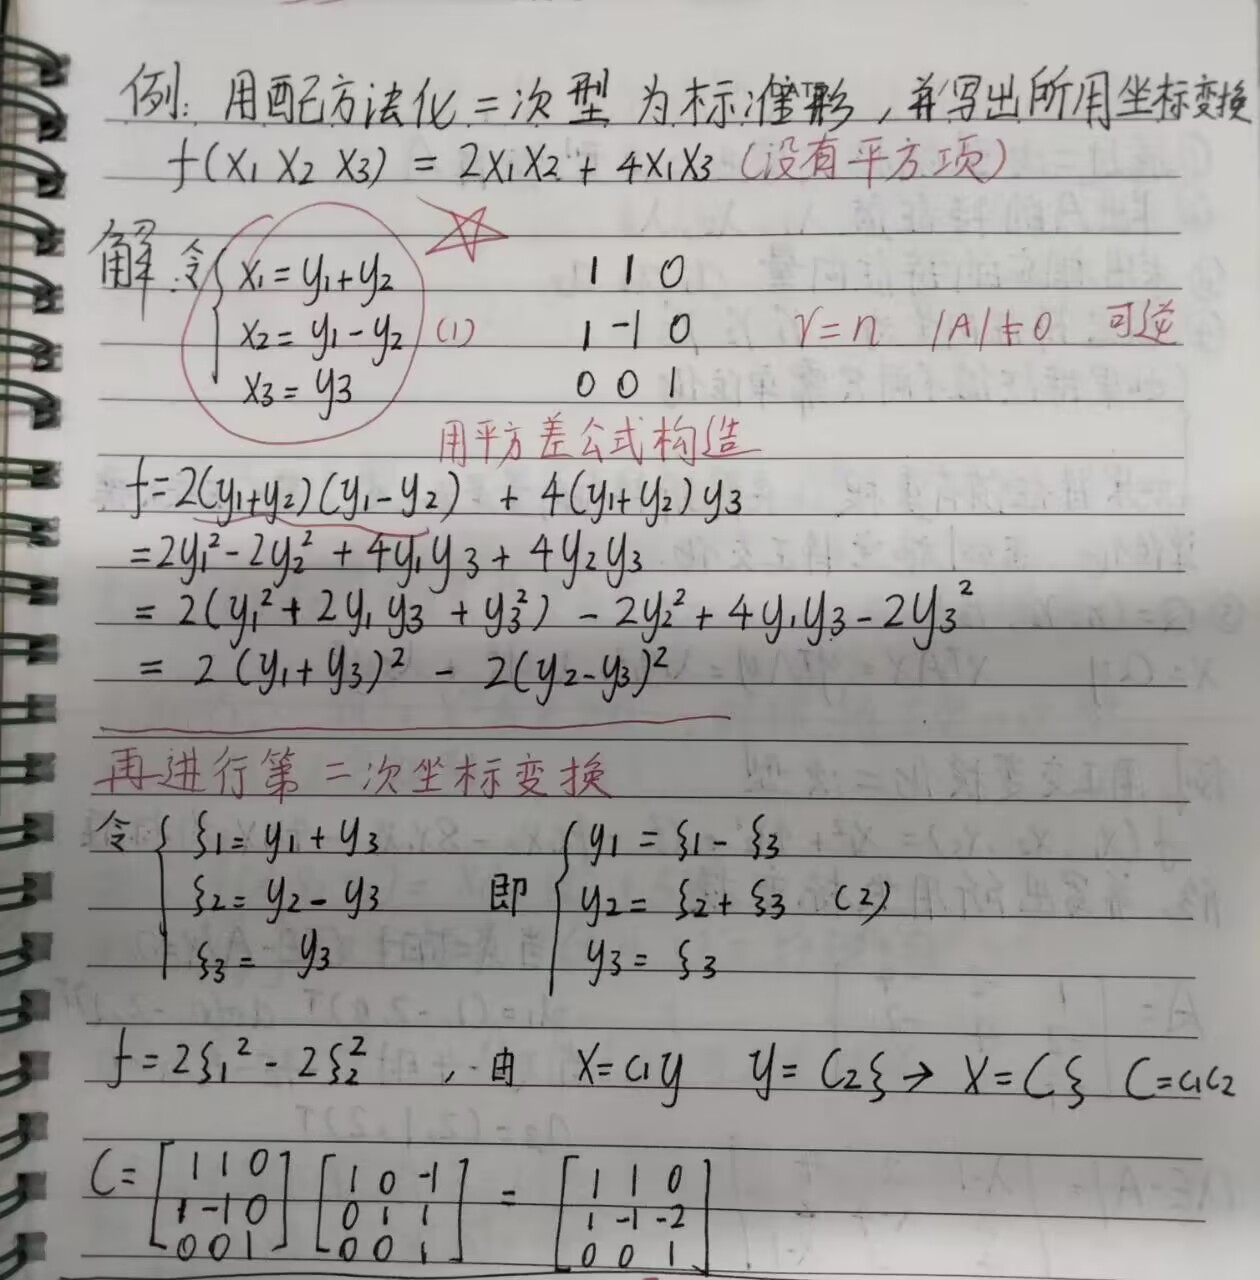 例: 用配方法化二次型 为标准形, 并写出所用坐标变换
f(x1 x2 x3) = 2x1x2 + 4x1x3 (没有平方项)
解 令 { x1 = y1+y2 1 1 0
x2 = y1 - y2 (1) 1 -1 0 r=n |A|≠0 可逆
x3 = y3 0 0 1
用平方差公式构造
f=2(y1+y2)(y1-y2) + 4(y1+y2)y3
=2y1² - 2y2² + 4y1y3 + 4y2y3
= 2(y1² + 2y1y3 + y3²) - 2y2² + 4y1y3 - 2y3²
= 2(y1+y3)² - 2(y2-y3)²
再进行第二次坐标变换
令 { ξ1 = y1 + y3 { y1 = ξ1 - ξ3
ξ2 = y2 - y3 即 y2 = ξ2 + ξ3 (2)
ξ3 = y3 y3 = ξ3
f=2ξ1² - 2ξ2² , 由 X=C1y y=C2ξ → X=Cξ C=C1C2
C= [1 1 0] [1 0 -1] = [1 1 0]
[1 -1 0] [0 1 1] [1 -1 -2]
[0 0 1] [0 0 1] [0 0 1]